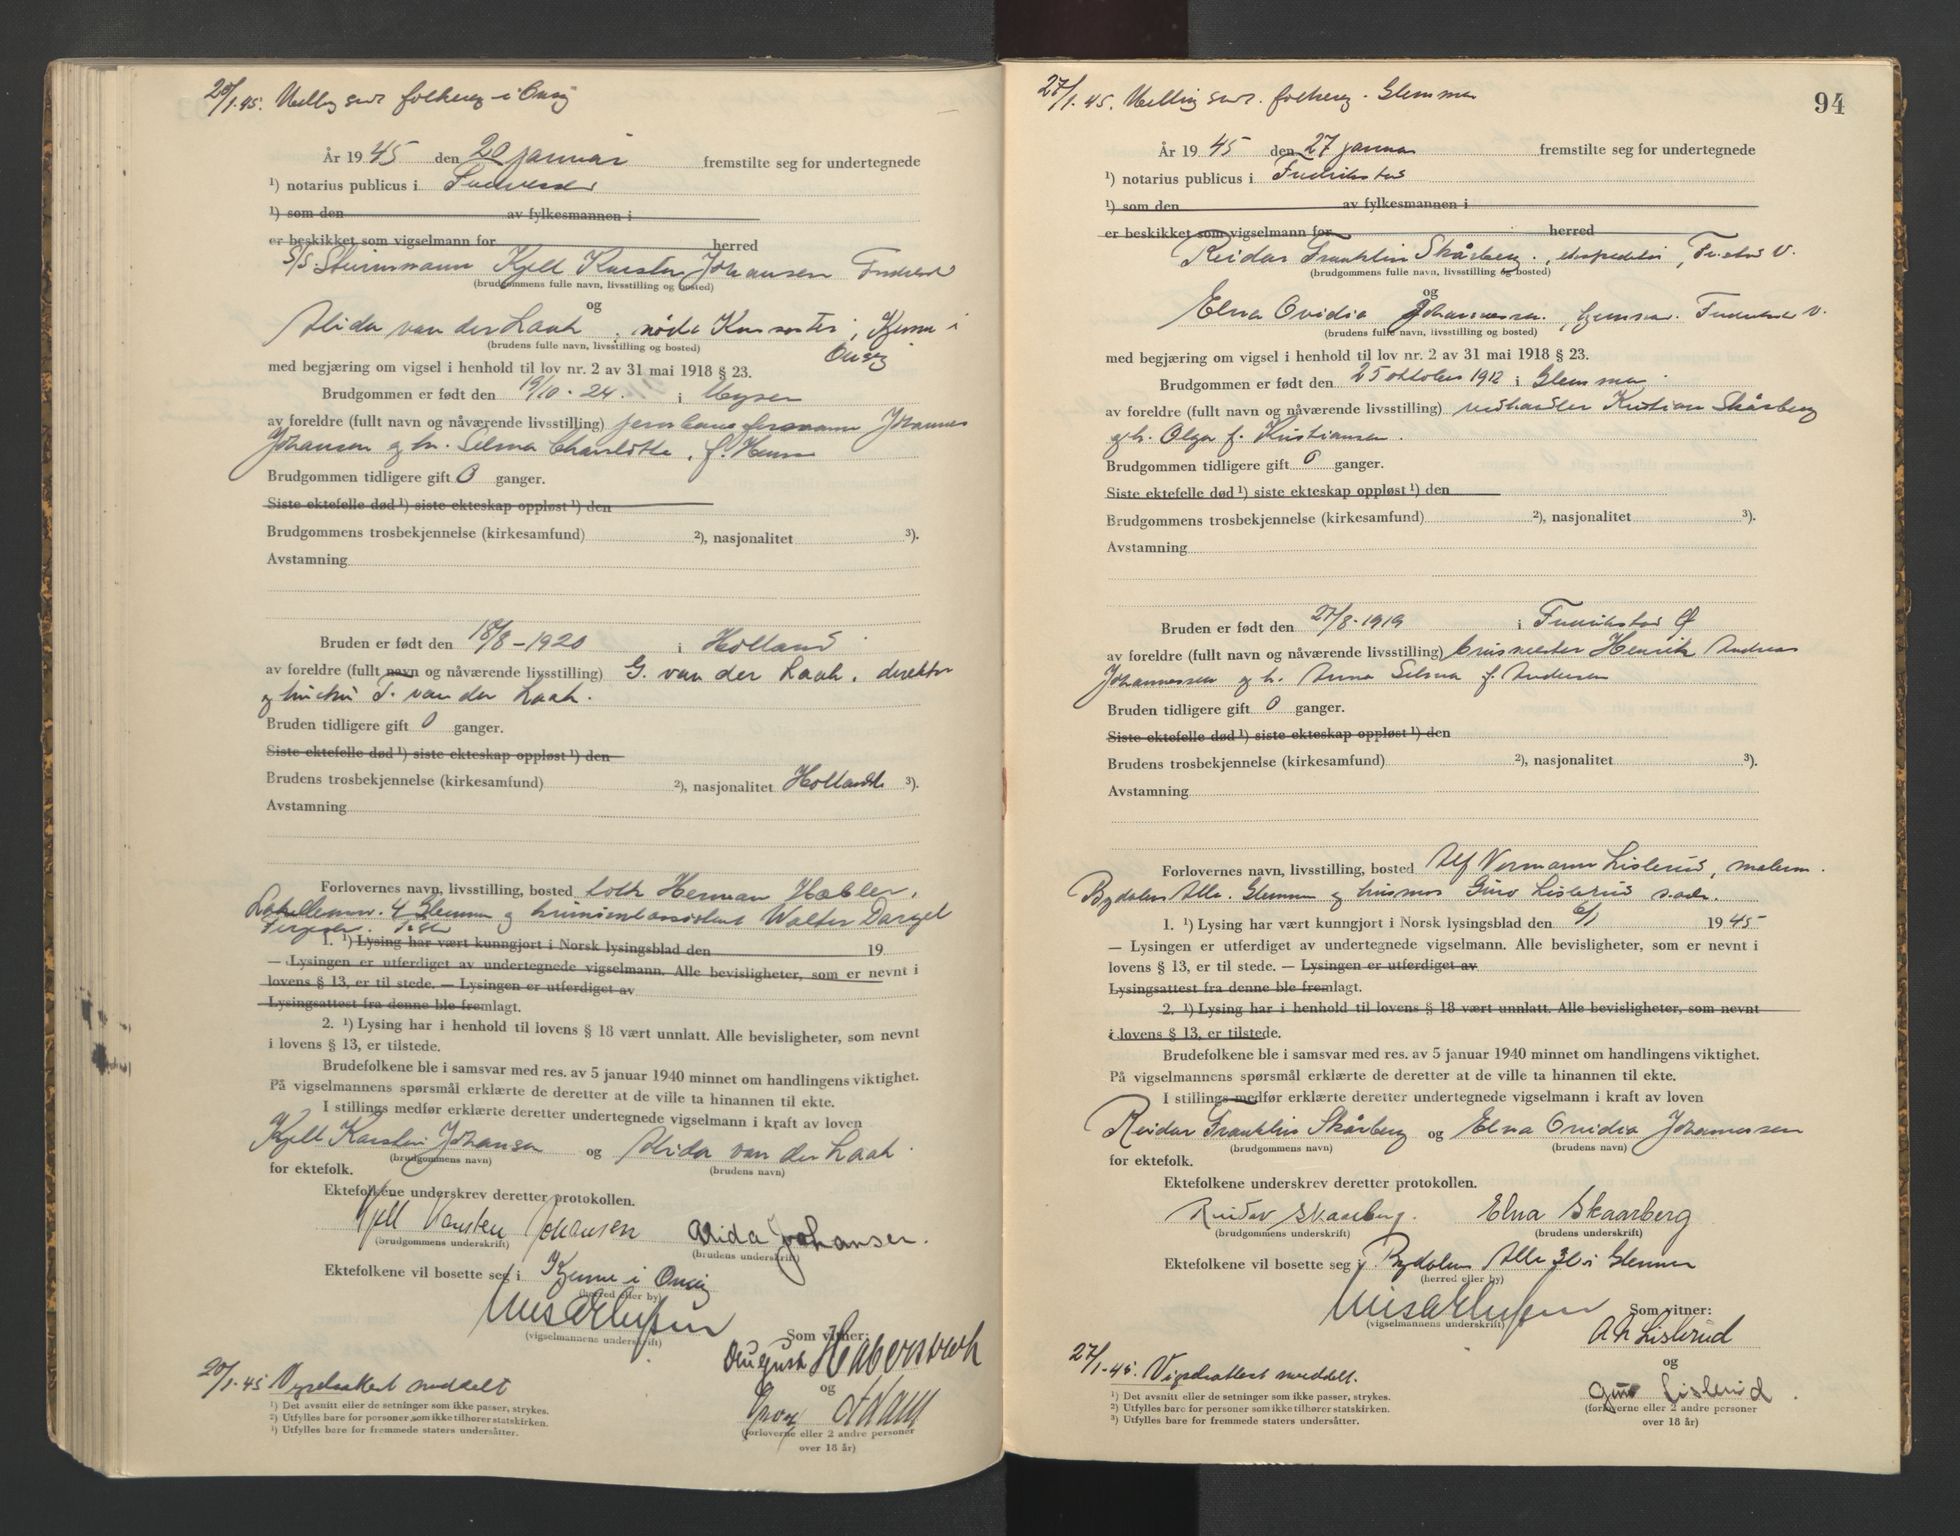 20/1.45. Melding sendt folkereg i Onsøy
År 1945 den 20 januar fremstilte seg for undertegnede
¹) notarius publicus i
¹) som den av fylkesmannen i
er beskikket som vigselmann for herred
S/S. Stuimann Kjell Karsten Johansen
(brudgommens fulle navn, livsstilling og bosted)
og
Alida van der Laak,
(brudens fulle navn, livsstilling og bosted)
Onsøy
med begjæring om vigsel i henhold til lov nr. 2 av 31 mai 1918 § 23.
Brudgommen er født den 19/10 - 24. i Mysen
av foreldre (fullt navn og nåværende livsstilling) Johannes
Johansen og h. Selma Charlotte, f.
Brudgommen tidligere gift 0 ganger.
Siste ektefelle død ¹) siste ekteskap oppløst ¹) den
Brudgommens trosbekjennelse (kirkesamfund) ²), nasjonalitet ³).
Avstamning
Bruden er født den 18/8 - 1920 i Holland
av foreldre (fullt navn og nåværende livsstilling) G. van der Laak, direktør
og hustru T. van der Laak.
Bruden tidligere gift 0 ganger.
Siste ektefelle død ¹) siste ekteskap oppløst ¹) den
Brudens trosbekjennelse (kirkesamfund) ²), nasjonalitet Hollandsk ³).
Avstamning
Forlovernes navn, livsstilling, bosted Herman Habler,
4 Glemmen og Walter Dargel
1. ¹) Lysing har vært kunngjort i Norsk lysingsblad den 19
— Lysingen er utferdiget av undertegnede vigselmann. Alle bevisligheter, som er nevnt i
lovens § 13, er til stede. — Lysingen er utferdiget av
Lysingsattest fra denne ble fremlagt.
2. ¹) Lysing har i henhold til lovens § 18 vært unnlatt. Alle bevisligheter, som nevnt
i lovens § 13, er tilstede.
Brudefolkene ble i samsvar med res. av 5 januar 1940 minnet om handlingens viktighet.
På vigselmannens spørsmål erklærte de deretter at de ville ta hinannen til ekte.
I stillings medfør erklærte deretter undertegnede vigselmann i kraft av loven
Kjell Karsten Johansen og Alida van der Laak
(brudgommens navn) (brudens navn)
for ektefolk.
Ektefolkene underskrev deretter protokollen.
Kjell Karsten Johansen Alida Johansen.
(brudgommens underskrift) (brudens underskrift)
Ektefolkene vil bosette seg i i Onsøy
(herred eller by)
(vigselmannens underskrift)
Som vitner:
August
og
(forloverne eller 2 andre personer
over 18 år)
20/1.45 Vigselsattest meddelt
¹) Det avsnitt eller de setninger som ikke passer, strykes.
²) Utfylles bare for personer som ikke tilhører statskirken.
³) Utfylles bare for fremmede staters undersåtter.
27/1.45. Melding sendt folkereg. Glemmen
94
År 1945 den 27 januar fremstilte seg for undertegnede
¹) notarius publicus i Fredrikstad
¹) som den av fylkesmannen i
er beskikket som vigselmann for herred
Reidar Franklin Skårberg, ekspeditør, Fr.stad V.
(brudgommens fulle navn, livsstilling og bosted)
og
Elna Ovidia Johannessen, V.
(brudens fulle navn, livsstilling og bosted)
med begjæring om vigsel i henhold til lov nr. 2 av 31 mai 1918 § 23.
Brudgommen er født den 25 oktober 1912 i Glemmen
av foreldre (fullt navn og nåværende livsstilling) vedhandler Kristian Skårberg
og h. Olga f. Kristiansen.
Brudgommen tidligere gift 0 ganger.
Siste ektefelle død ¹) siste ekteskap oppløst ¹) den
Brudgommens trosbekjennelse (kirkesamfund) ²), nasjonalitet ³).
Avstamning
Bruden er født den 27/8 - 1919 i Fredrikstad Ø
av foreldre (fullt navn og nåværende livsstilling) Henrik Andreas
Johannessen og h. Anna Selma f. Andersen
Bruden tidligere gift 0 ganger.
Siste ektefelle død ¹) siste ekteskap oppløst ¹) den
Brudens trosbekjennelse (kirkesamfund) ²), nasjonalitet ³).
Avstamning
Forlovernes navn, livsstilling, bosted Alf Normann Lislerud, malerm.
Bydalen Alle. Glemmen og husmor Guro Lislerud s. adr.
1. ¹) Lysing har vært kunngjort i Norsk lysingsblad den 6/1 1945
— Lysingen er utferdiget av undertegnede vigselmann. Alle bevisligheter, som er nevnt i
lovens § 13, er til stede. — Lysingen er utferdiget av
Lysingsattest fra denne ble fremlagt.
2. ¹) Lysing har i henhold til lovens § 18 vært unnlatt. Alle bevisligheter, som nevnt
i lovens § 13, er tilstede.
Brudefolkene ble i samsvar med res. av 5 januar 1940 minnet om handlingens viktighet.
På vigselmannens spørsmål erklærte de deretter at de ville ta hinannen til ekte.
I stillings medfør erklærte deretter undertegnede vigselmann i kraft av loven
Reidar Franklin Skårberg og Elna Ovidia Johannessen
(brudgommens navn) (brudens navn)
for ektefolk.
Ektefolkene underskrev deretter protokollen.
Reidar Skaarberg. Elna Skaarberg
(brudgommens underskrift) (brudens underskrift)
Ektefolkene vil bosette seg i Bydalen Alle 30 i Glemmen
(herred eller by)
(vigselmannens underskrift)
Som vitner:
A N Lislerud
og
Guro Lislerud.
(forloverne eller 2 andre personer
over 18 år)
27/1.45. Vigselsattest meddelt.
¹) Det avsnitt eller de setninger som ikke passer, strykes.
²) Utfylles bare for personer som ikke tilhører statskirken.
³) Utfylles bare for fremmede staters undersåtter.